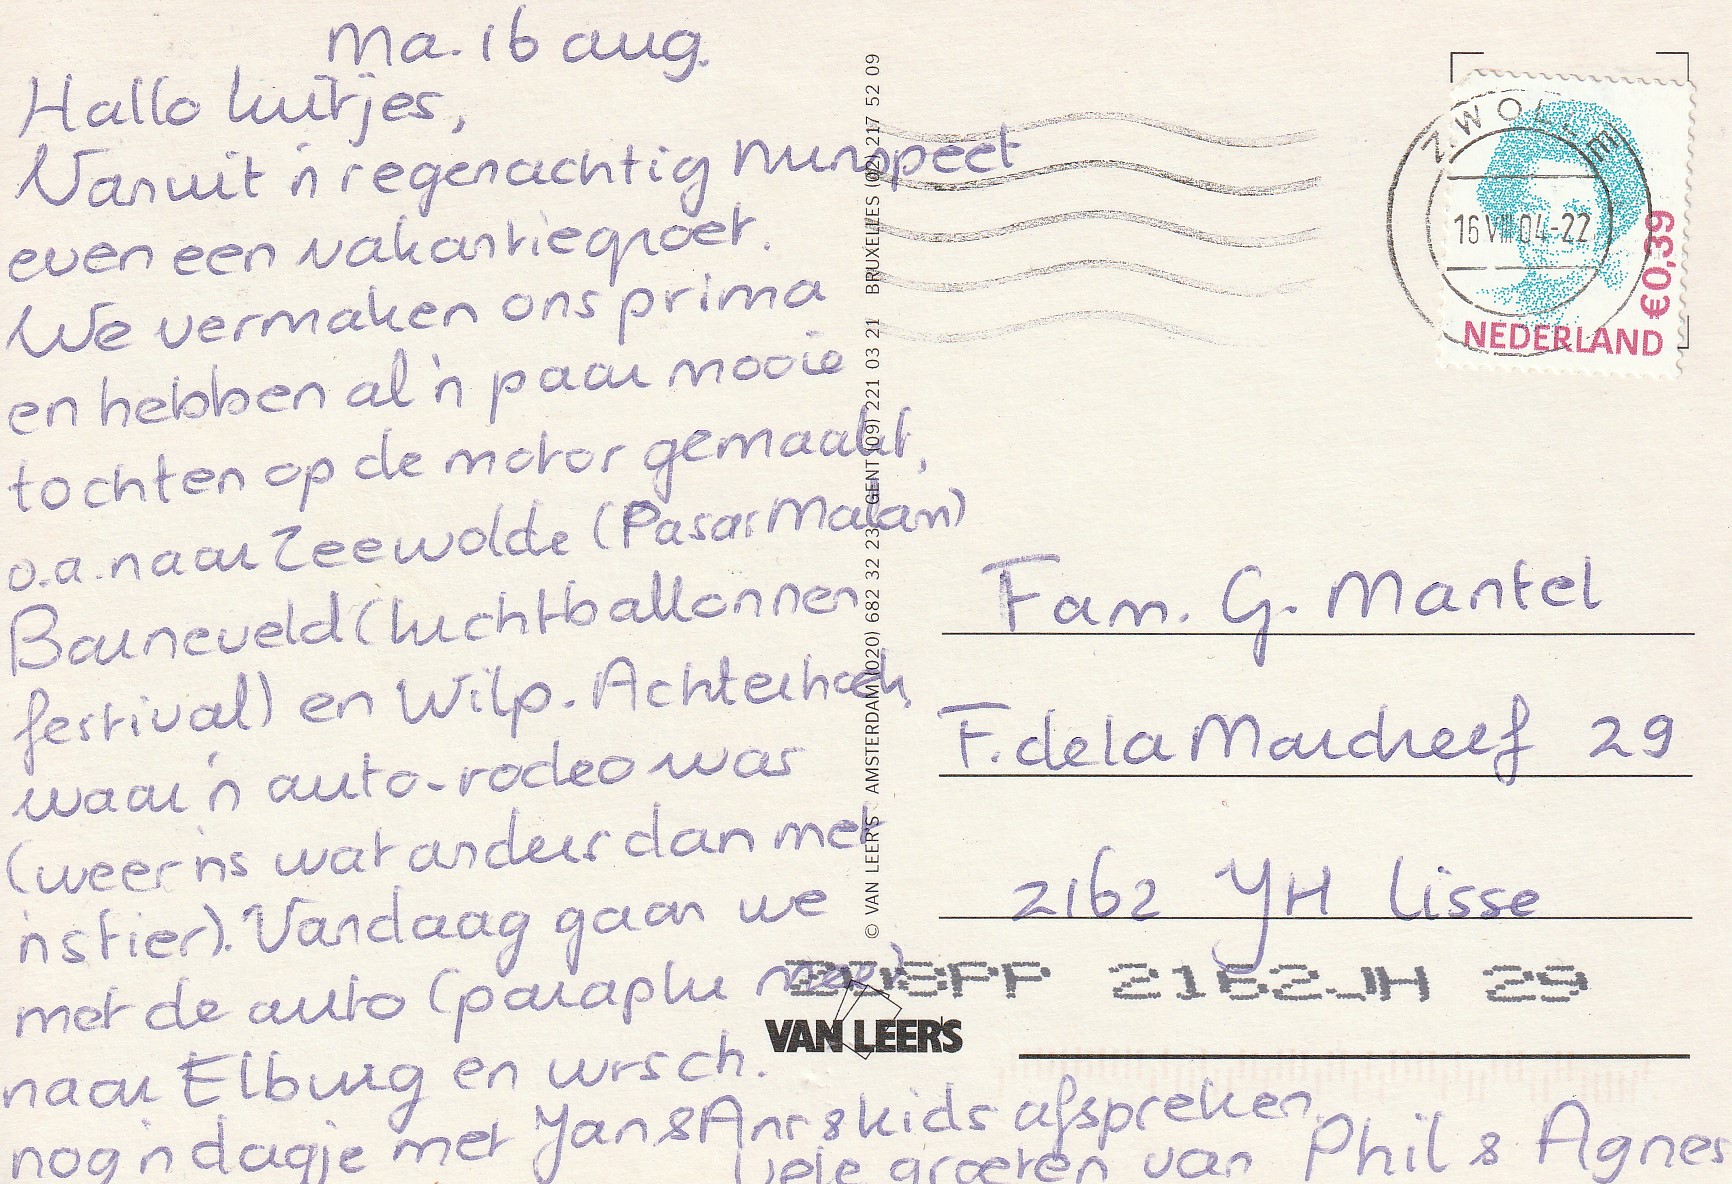 Ma. 16 aug.
Hallo luitjes,
Vanuit 'n regenachtig Nunspeet
even een vakantiegroet.
We vermaken ons prima
en hebben al 'n paar mooie
tochten op de motor gemaakt,
o.a. naar Zeewolde (Pasar Malam)
Barneveld (luchtballonnen
festival) en Wilp-Achterhoek,
waar 'n auto-rodeo was
(weer 'ns wat anders dan met
'n stier). Vandaag gaan we
met de auto (paraplu mee)
naar Elburg en wrsch.
nog 'n dagje met Jan & Anr & kids afspreken.
Vele groeten van Phil & Agnes
© VAN LEER'S AMSTERDAM (020) 682 32 23 GENT (09) 221 03 21 BRUXELLES (02) 217 52 09
ZWOLLE
16 VIII 04-22
€0,39
NEDERLAND
Fam. G. Mantel
F. de la Marcheef 29
2162 YH Lisse
2162JH 29
VAN LEER'S